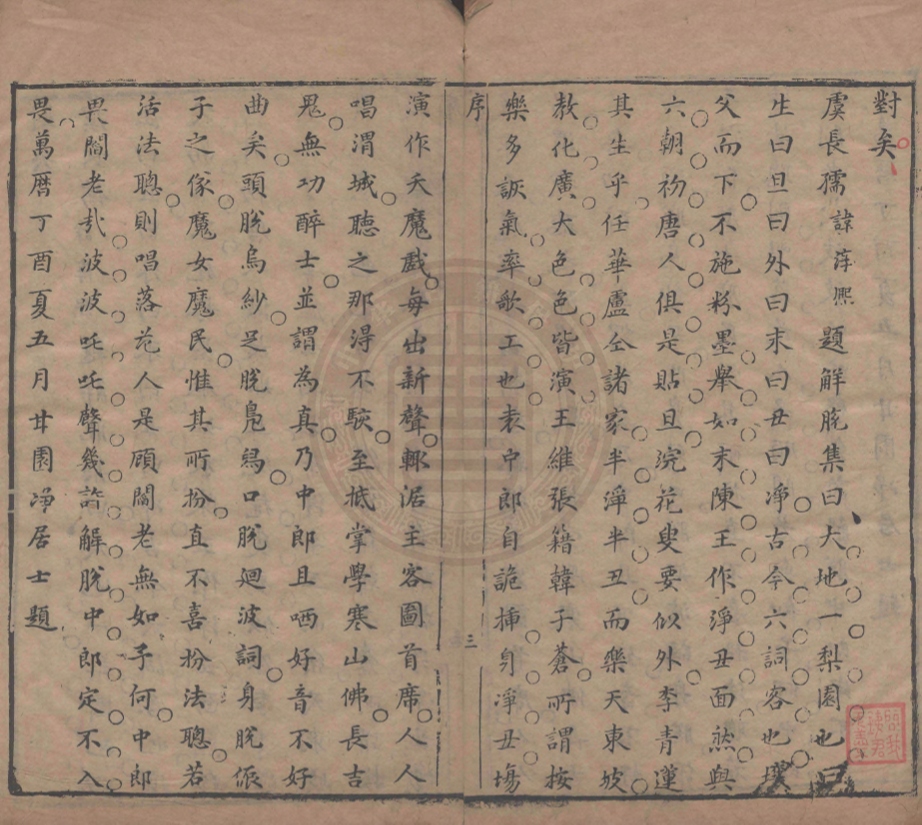 對矣
虞長孺諱淳熈題解脫集曰大地一梨園也曰
生曰旦曰外曰末曰丑曰淨古今六詞客也壤
父而下不施粉墨舉如末陳王作淨丑面然與
六朝初唐人俱是貼旦浣花叟要似外李青蓮
其生乎任華盧仝諸家半淨半丑而樂天東坡
敎化廣大色色皆演王維張籍韓子蒼所謂按
樂多詼氣率歌工也袁中郎自詭揷身淨丑塲
序
三
演作夭魔戲每出新聲輒㨿主客圖首席人人
唱渭城聽之那淂不駭至抵掌學寒山佛長吉
鬼無功醉士並謂為真乃中郎且哂好音不好
曲矣頭脫烏紗足脫鳧舄口脫迴波詞身脫侲
子之傢魔女魔民惟其所扮直不喜扮法聰若
活法聰則唱落花人是顧閻老無如子何中郎
畏閻老哉波波吒吒聲幾許解脫中郎定不入
畏萬曆丁酉夏五月廿園淨居士題